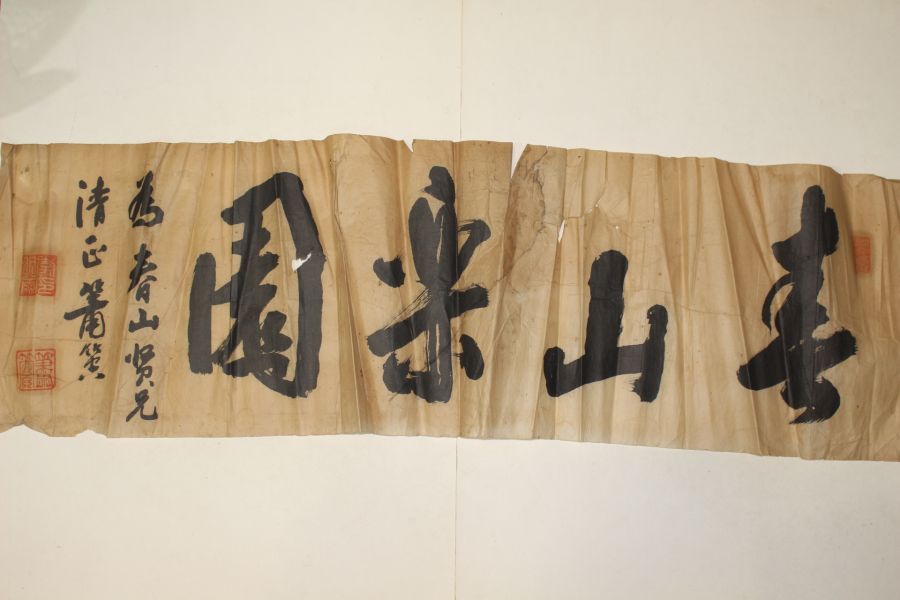 春山樂園
為春山賢兄
清正 簫簧